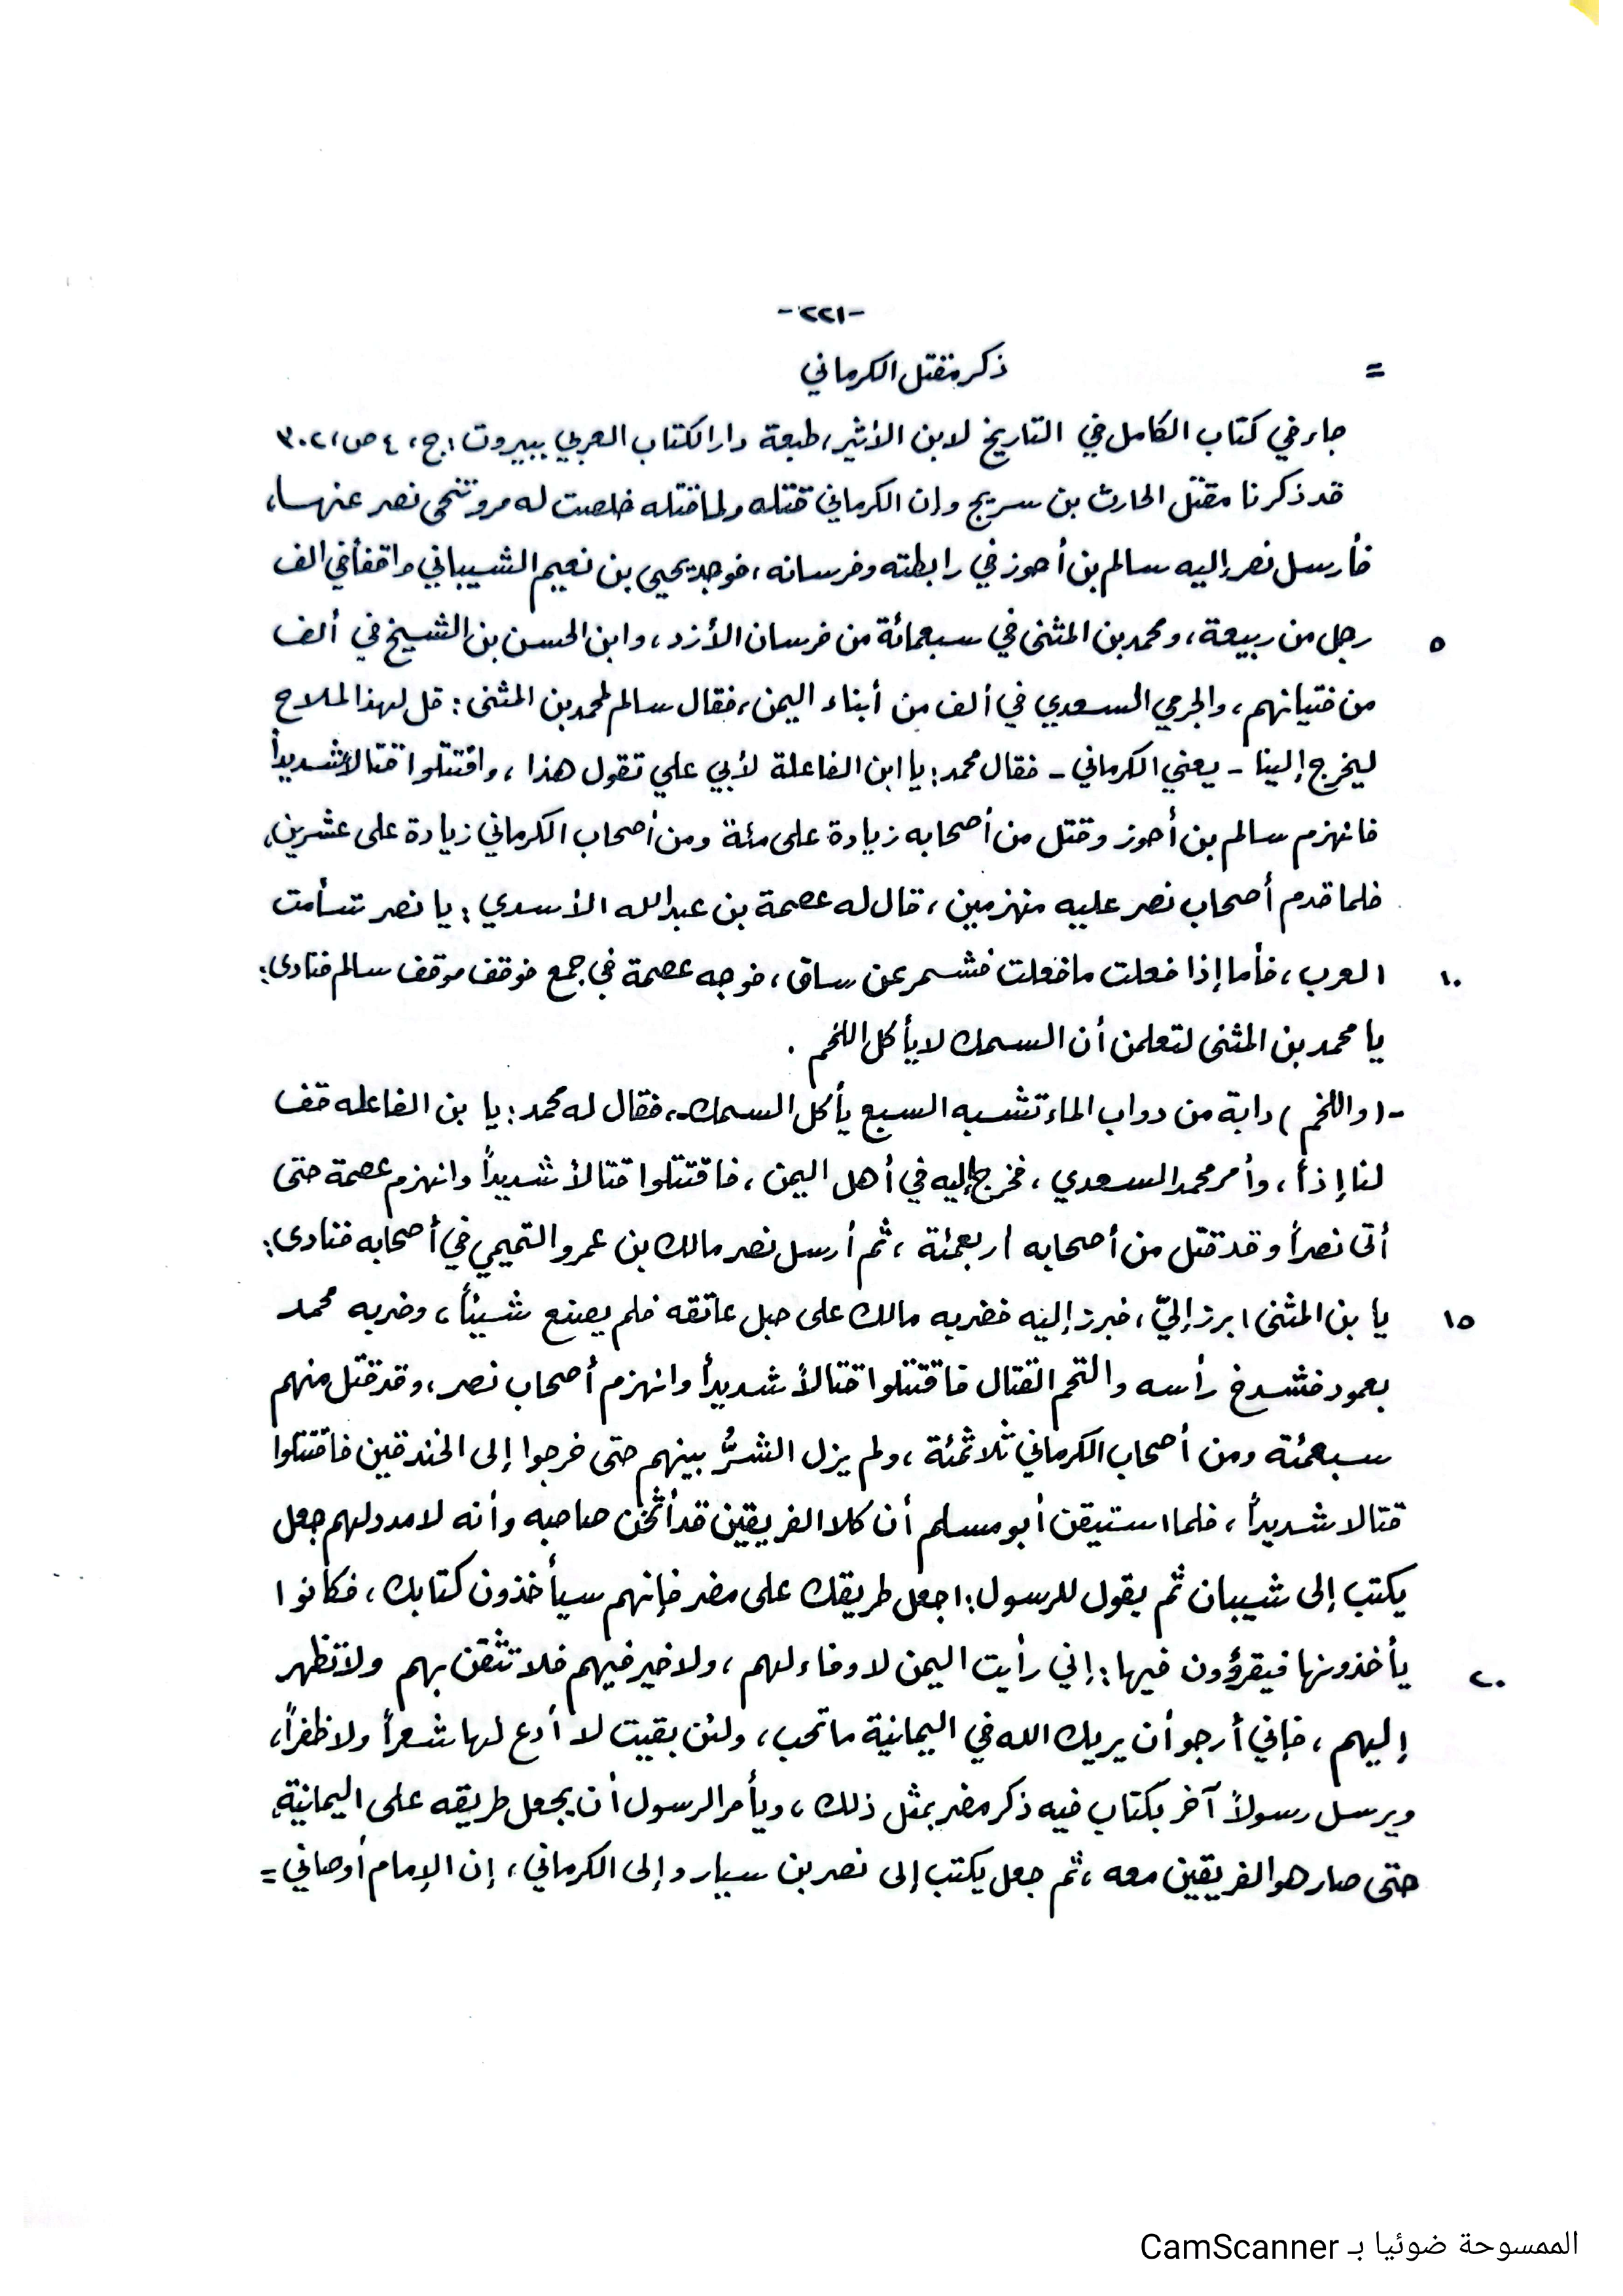 -٢٢١-
= ذكر مقتل الكرماني
جاء في كتاب الكامل في التاريخ لابن الأثير، طبعة دار الكتاب العربي ببيروت، ج، ٤ ص، ٣٠٢
قد ذكرنا مقتل الحارث بن سريج وإن الكرماني قتله ولما قتله خلصت له مرو تنحى نصر عنها،
فأرسل نصر إليه سالم بن أحوز في رابطته وفرسانه، فوجد يحيى بن نعيم الشيباني واقفاً في الف
٥ رجل من ربيعة، ومحمد بن المثنى في سبعمائة من فرسان الأزد، وابن الحسن بن الشيخ في ألف
من فتيانهم، والجرمي السعدي في ألف من أبناء اليمن، فقال سالم لمحمد بن المثنى: قل لهذا الملاح
ليخرج إلينا - يعني الكرماني - فقال محمد: يا ابن الفاعلة لأبي علي تقول هذا، واقتتلوا قتالاً شديداً
فانهزم سالم بن أحوز وقتل من أصحابه زيادة على مئة ومن أصحاب الكرماني زيادة على عشرين،
فلما قدم أصحاب نصر عليه منهزمين، قال له عصمة بن عبد الله الأسدي: يا نصر تسأمت
١٠ العرب، فأما إذا فعلت ما فعلت فشمر عن ساق، فوجه عصمة في جمع فوقف موقف سالم فنادى:
يا محمد بن المثنى لتعلمن أن السمك لا يأكل اللخم .
-(واللخم) دابة من دواب الماء تشبه السبع يأكل السمك، فقال له محمد: يا بن الفاعله قف
لنا إذاً، وأمر محمد السعدي، فخرج إليه في أهل اليمن، فاقتتلوا قتالاً شديداً وانهزم عصمة حتى
أتى نصراً وقد قتل من أصحابه أربعمئة، ثم أرسل نصر مالك بن عمرو التميمي في أصحابه فنادى:
١٥ يا بن المثنى ابرز إليّ، فبرز إليه فضربه مالك على حبل عاتقه فلم يصنع شيئاً، وضربه محمد
بعمود فشدخ رأسه والتحم القتال فاقتتلوا قتالاً شديداً وانهزم أصحاب نصر، وقد قتل منهم
سبعمئة ومن أصحاب الكرماني ثلاثمئة، ولم يزل الشرُّ بينهم حتى خرجوا إلى الخندقين فاقتتلوا
قتالا شديداً، فلما استيقن أبو مسلم أن كلا الفريقين قد أثخن صاحبه وأنه لا مدد لهم جعل
يكتب إلى شيبان ثم يقول للرسول: اجعل طريقك على مضر فإنهم سيأخذون كتابك، فكانوا
٢٠ يأخذونها فيقرؤون فيها: إني رأيت اليمن لا وفاء لهم، ولا خير فيهم فلا تثقن بهم ولا تظهر
إليهم، فإني أرجو أن يريك الله في اليمانية ما تحب، ولئن بقيت لا أدع لها شعراً ولا ظفراً،
ويرسل رسولاً آخر بكتاب فيه ذكر مضر بمثل ذلك، ويأمر الرسول أن يجعل طريقه على اليمانية،
حتى صار هو الفريقين معه، ثم جعل يكتب إلى نصر بن سيار وإلى الكرماني، إن الإمام أوصاني =
الممسوحة ضوئيا بـ CamScanner